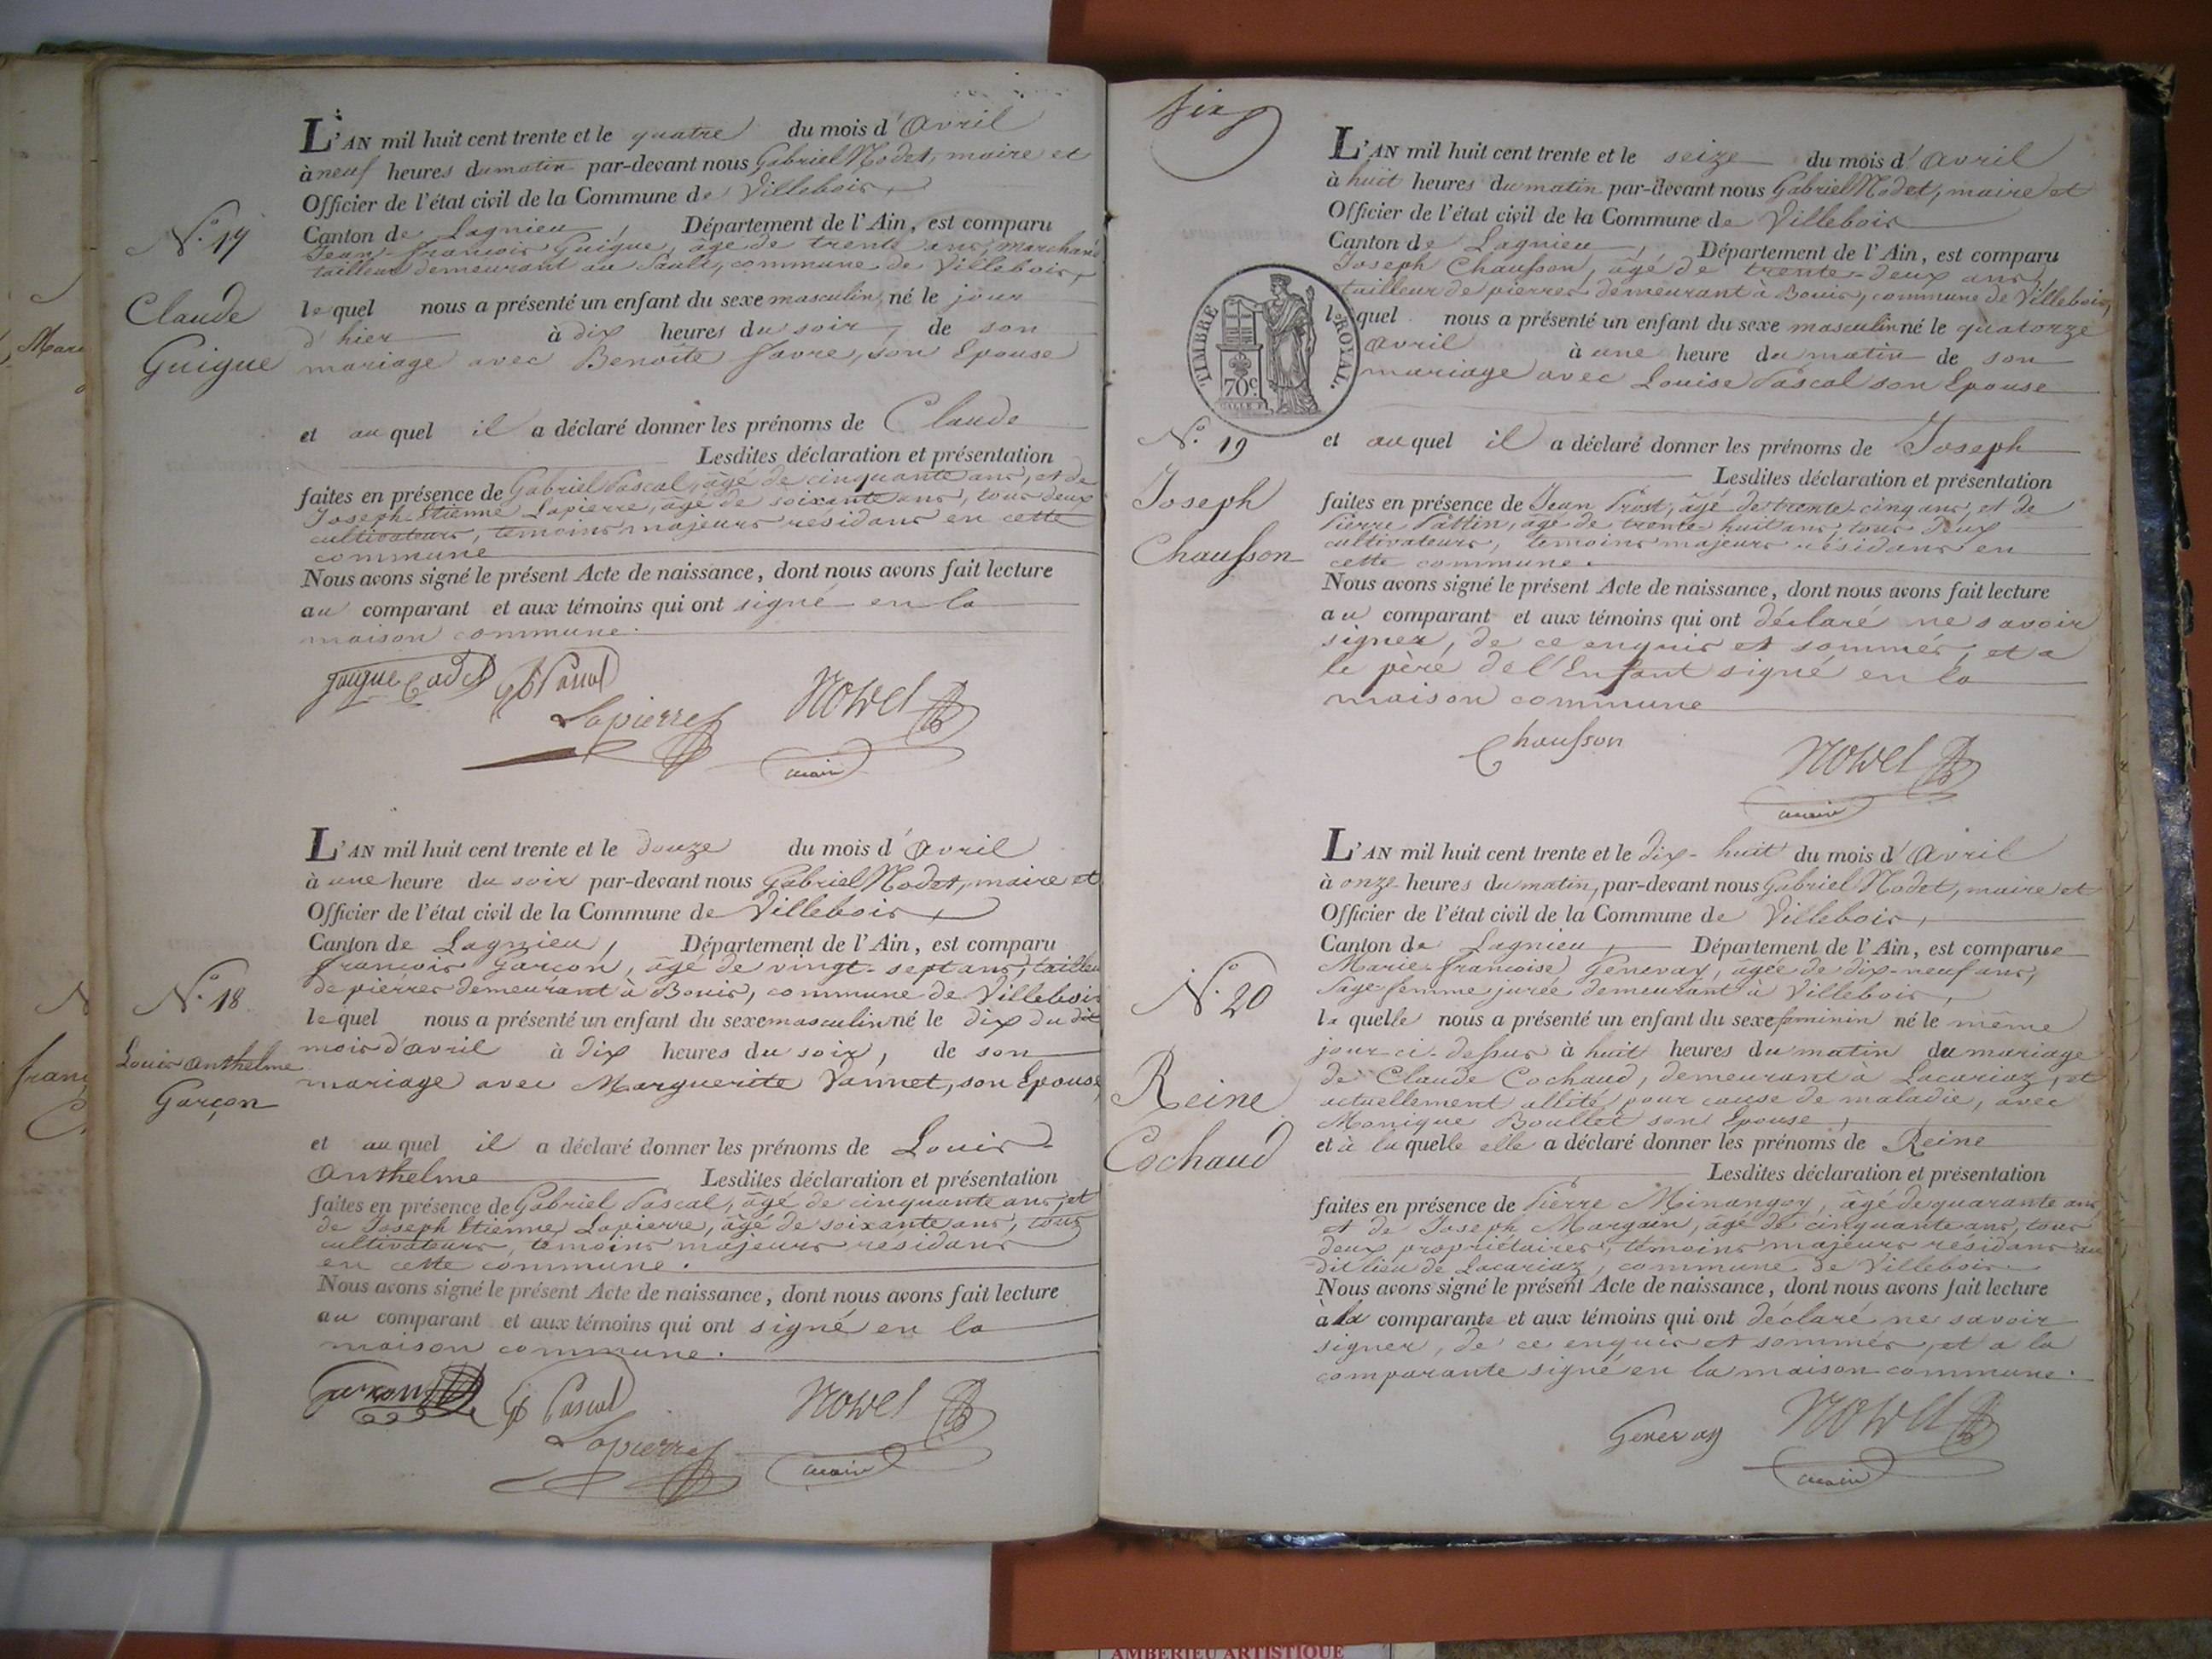 L'AN mil huit cent trente et le quatre du mois d'Avril
à neuf heures du matin par-devant nous Gabriel Nodet, maire et
Officier de l'état civil de la Commune de Villebois,
Canton de Lagnieu, Département de l'Ain, est comparu
Jean-françois Guigue, âgé de trente ans, marchand
tailleur demeurant au Sault, commune de Villebois,
N.° 17
Claude
Guigue
lequel nous a présenté un enfant du sexe masculin, né le jour
d'hier à dix heures du soir, de son
mariage avec Benoîte favre, son Epouse
et auquel il a déclaré donner les prénoms de Claude
Lesdites déclaration et présentation
faites en présence de Gabriel Pascal, âgé de cinquante ans, et de
Joseph-Etienne Lapierre, âgé de soixante ans, tous deux
cultivateurs, témoins majeurs résidans en cette
commune
Nous avons signé le présent Acte de naissance, dont nous avons fait lecture
au comparant et aux témoins qui ont signé en la
maison commune.
Pascal
Lapierre
maire
L'AN mil huit cent trente et le douze du mois d'Avril
à une heure du soir par-devant nous Gabriel Nodet, maire et
Officier de l'état civil de la Commune de Villebois,
Canton de Lagnieu, Département de l'Ain, est comparu
françois Garçon, âgé de vingt-sept ans, tailleur
de pierres demeurant à Bouis, commune de Villebois
N.° 18
Louis Anthelme
Garçon
lequel nous a présenté un enfant du sexe masculin né le dix du dit
mois d'avril à dix heures du soir, de son
mariage avec Marguerite Vannet, son Epouse,
et auquel il a déclaré donner les prénoms de Louis-
Anthelme Lesdites déclaration et présentation
faites en présence de Gabriel Pascal, âgé de cinquante ans, et
de Joseph Etienne Lapierre, âgé de soixante ans, tous
cultivateurs, témoins majeurs résidans
en cette commune.
Nous avons signé le présent Acte de naissance, dont nous avons fait lecture
au comparant et aux témoins qui ont signé en la
maison commune.
Pascal
Lapierre
maire
six
L'AN mil huit cent trente et le seize du mois d'Avril
à huit heures du matin par-devant nous Gabriel Nodet, maire et
Officier de l'état civil de la Commune de Villebois
Canton de Lagnieu, Département de l'Ain, est comparu
Joseph Chausson, âgé de trente-deux ans,
tailleur de pierres demeurant à Bouis, commune de Villebois,
TIMBRE ROYAL.
70c
lequel nous a présenté un enfant du sexe masculin né le quatorze
avril à une heure du matin de son
mariage avec Louise Pascal son Epouse
N.° 19
Joseph
Chausson
et auquel il a déclaré donner les prénoms de Joseph
Lesdites déclaration et présentation
faites en présence de Jean Prost, âgé de trente-cinq ans, et de
Pierre Pattin, âgé de trente-huit ans, tous deux
cultivateurs, témoins majeurs résidans en
cette commune.
Nous avons signé le présent Acte de naissance, dont nous avons fait lecture
au comparant et aux témoins qui ont déclaré ne savoir
signer, de ce enquis et sommés, et a
le père de l'Enfant signé en la
maison commune
Chausson
maire
L'AN mil huit cent trente et le dix-huit du mois d'Avril
à onze heures du matin, par-devant nous Gabriel Nodet, maire et
Officier de l'état civil de la Commune de Villebois,
Canton de Lagnieu, Département de l'Ain, est comparue
Marie-françoise Genevay, âgée de dix-neuf ans,
Sage-femme jurée demeurant à Villebois,
N.° 20
Reine
Cochaud
laquelle nous a présenté un enfant du sexe feminin né le même
jour ci-dessus à huit heures du matin du mariage
de Claude Cochaud, demeurant à Lacariaz, et
actuellement allité pour cause de maladie, avec
Monique Boullet son Epouse,
et à laquelle elle a déclaré donner les prénoms de Reine
Lesdites déclaration et présentation
faites en présence de Pierre Minangoy, âgé de quarante ans,
et de Joseph Margain, âgé de cinquante ans, tous
deux propriétaires, témoins majeurs résidans au
dit lieu de Lacariaz, commune de Villebois
Nous avons signé le présent Acte de naissance, dont nous avons fait lecture
à la comparante et aux témoins qui ont déclaré ne savoir
signer, de ce enquis et sommés, et a la
comparante signé en la maison commune.
Genevay
maire
AMBERIEU ARTISTIQUE